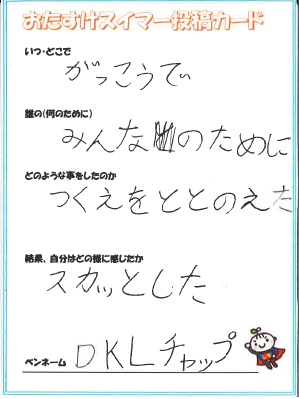 おたすけスイマー投稿カード
いつ・どこで
がっこうで
誰の(何のために)
みんなのために
どのような事をしたのか
つくえをととのえた
結果、自分はどの様に感じたか
スカッとした
ペンネーム DKLチャップ